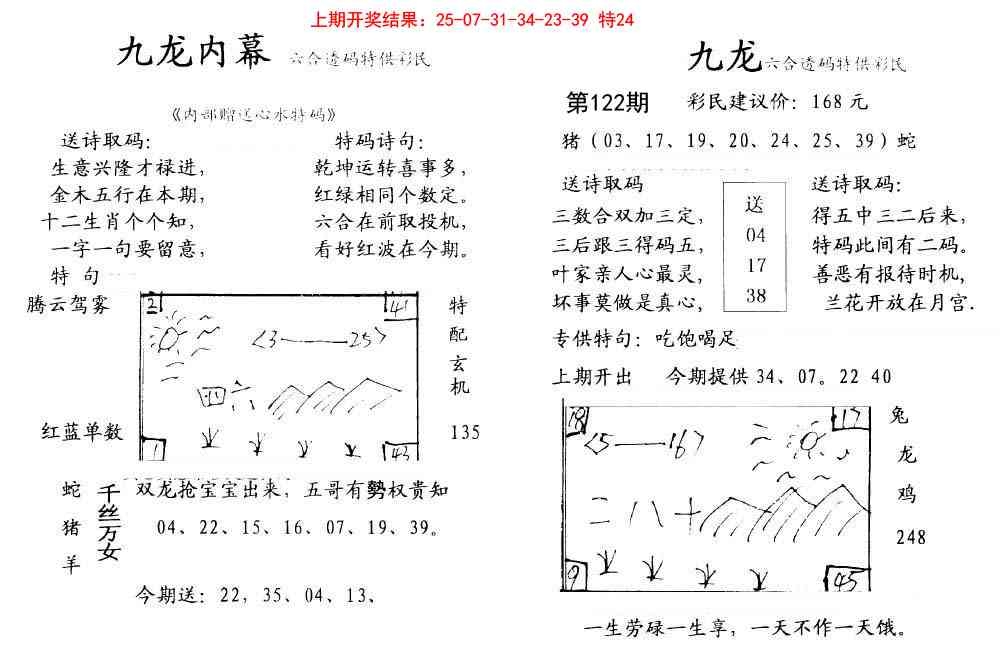 上期开奖结果：25-07-31-34-23-39 特24
九龙内幕 六合透码特供彩民
《内部赠送心水特码》
送诗取码：
生意兴隆才禄进，
金木五行在本期，
十二生肖个个知，
一字一句要留意，
特码诗句：
乾坤运转喜事多，
红绿相同个数定。
六合在前取投机，
看好红波在今期。
特 句
腾云驾雾
红蓝单数
21
41
<3——25>
四六
1
43
特
配
玄
机
135
蛇
猪
羊
千丝万女
双龙抢宝宝出来，五哥有勢权贵知
04、22、15、16、07、19、39。
今期送：22，35、04、13、
九龙六合透码特供彩民
第122期 彩民建议价：168元
猪（03、17、19、20、24、25、39）蛇
送诗取码
三数合双加三定，
三后跟三得码五，
叶家亲人心最灵，
坏事莫做是真心，
送
04
17
38
送诗取码：
得五中三二后来，
特码此间有二码。
善恶有报待时机，
兰花开放在月宫.
专供特句：吃饱喝足
上期开出 今期提供34、07。22 40
18
17
<5——16>
二八十
9
45
兔
龙
鸡
248
一生劳碌一生享，一天不作一天饿。